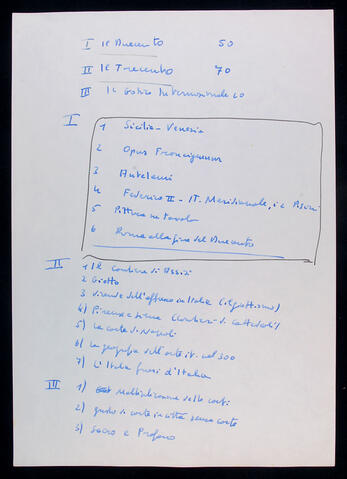 I Il Duecento 50
II Il Trecento 70
III Il Gotico Internazionale 60
I
1 Sicilia - Venezia
2 Opus Francigenum
3 Antelami
4 Federico II - IT. Meridionale, i Pisani
5 Pittura su tavola
6 Roma alla fine del Duecento
II
1 Il Cantiere di Assisi
2 Giotto
3 vicende dell'affresco in Italia (il giottismo)
4) Firenze e Siena (Cantieri di Cattedrali)
5) La corte di Napoli
6) La geografia dell'arte it. nel 300
7) L'Italia fuori d'Italia
III
1) Moltiplicazione delle corti
2) gusto di corte in città senza corte
3) Sacro e Profano